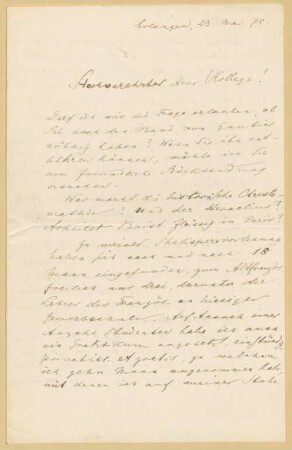 Erlangen, 23. Mai 75.
Hochverehrter Herr Kollege!
Darf ich mir die Frage erlauben, ob
Sie noch den Band von Gautier
nöthig haben? Wenn Sie ihn ent-
behren können, möchte ich Sie
um freundliche Rücksendung
ersuchen.
Was macht die historische Chresto-
mathie? Und der
Arbeitet Baist fleissig in Paris?
Zu meiner Shakspere-Vorlesung
haben sich nach und nach 18
Mann eingefunden, zum Altfranzös.
freilich nur drei, darunter der
Lehrer des Französ. an hiesiger
Gewerbschule. Auf Wunsch einer
Anzahl Studenten habe ich auch
ein Praktikum angesetzt, einstünd.
privatiss. et gratis, zu welchem
ich zehn Mann angenommen hab,
mit denen ich auf meiner Stube